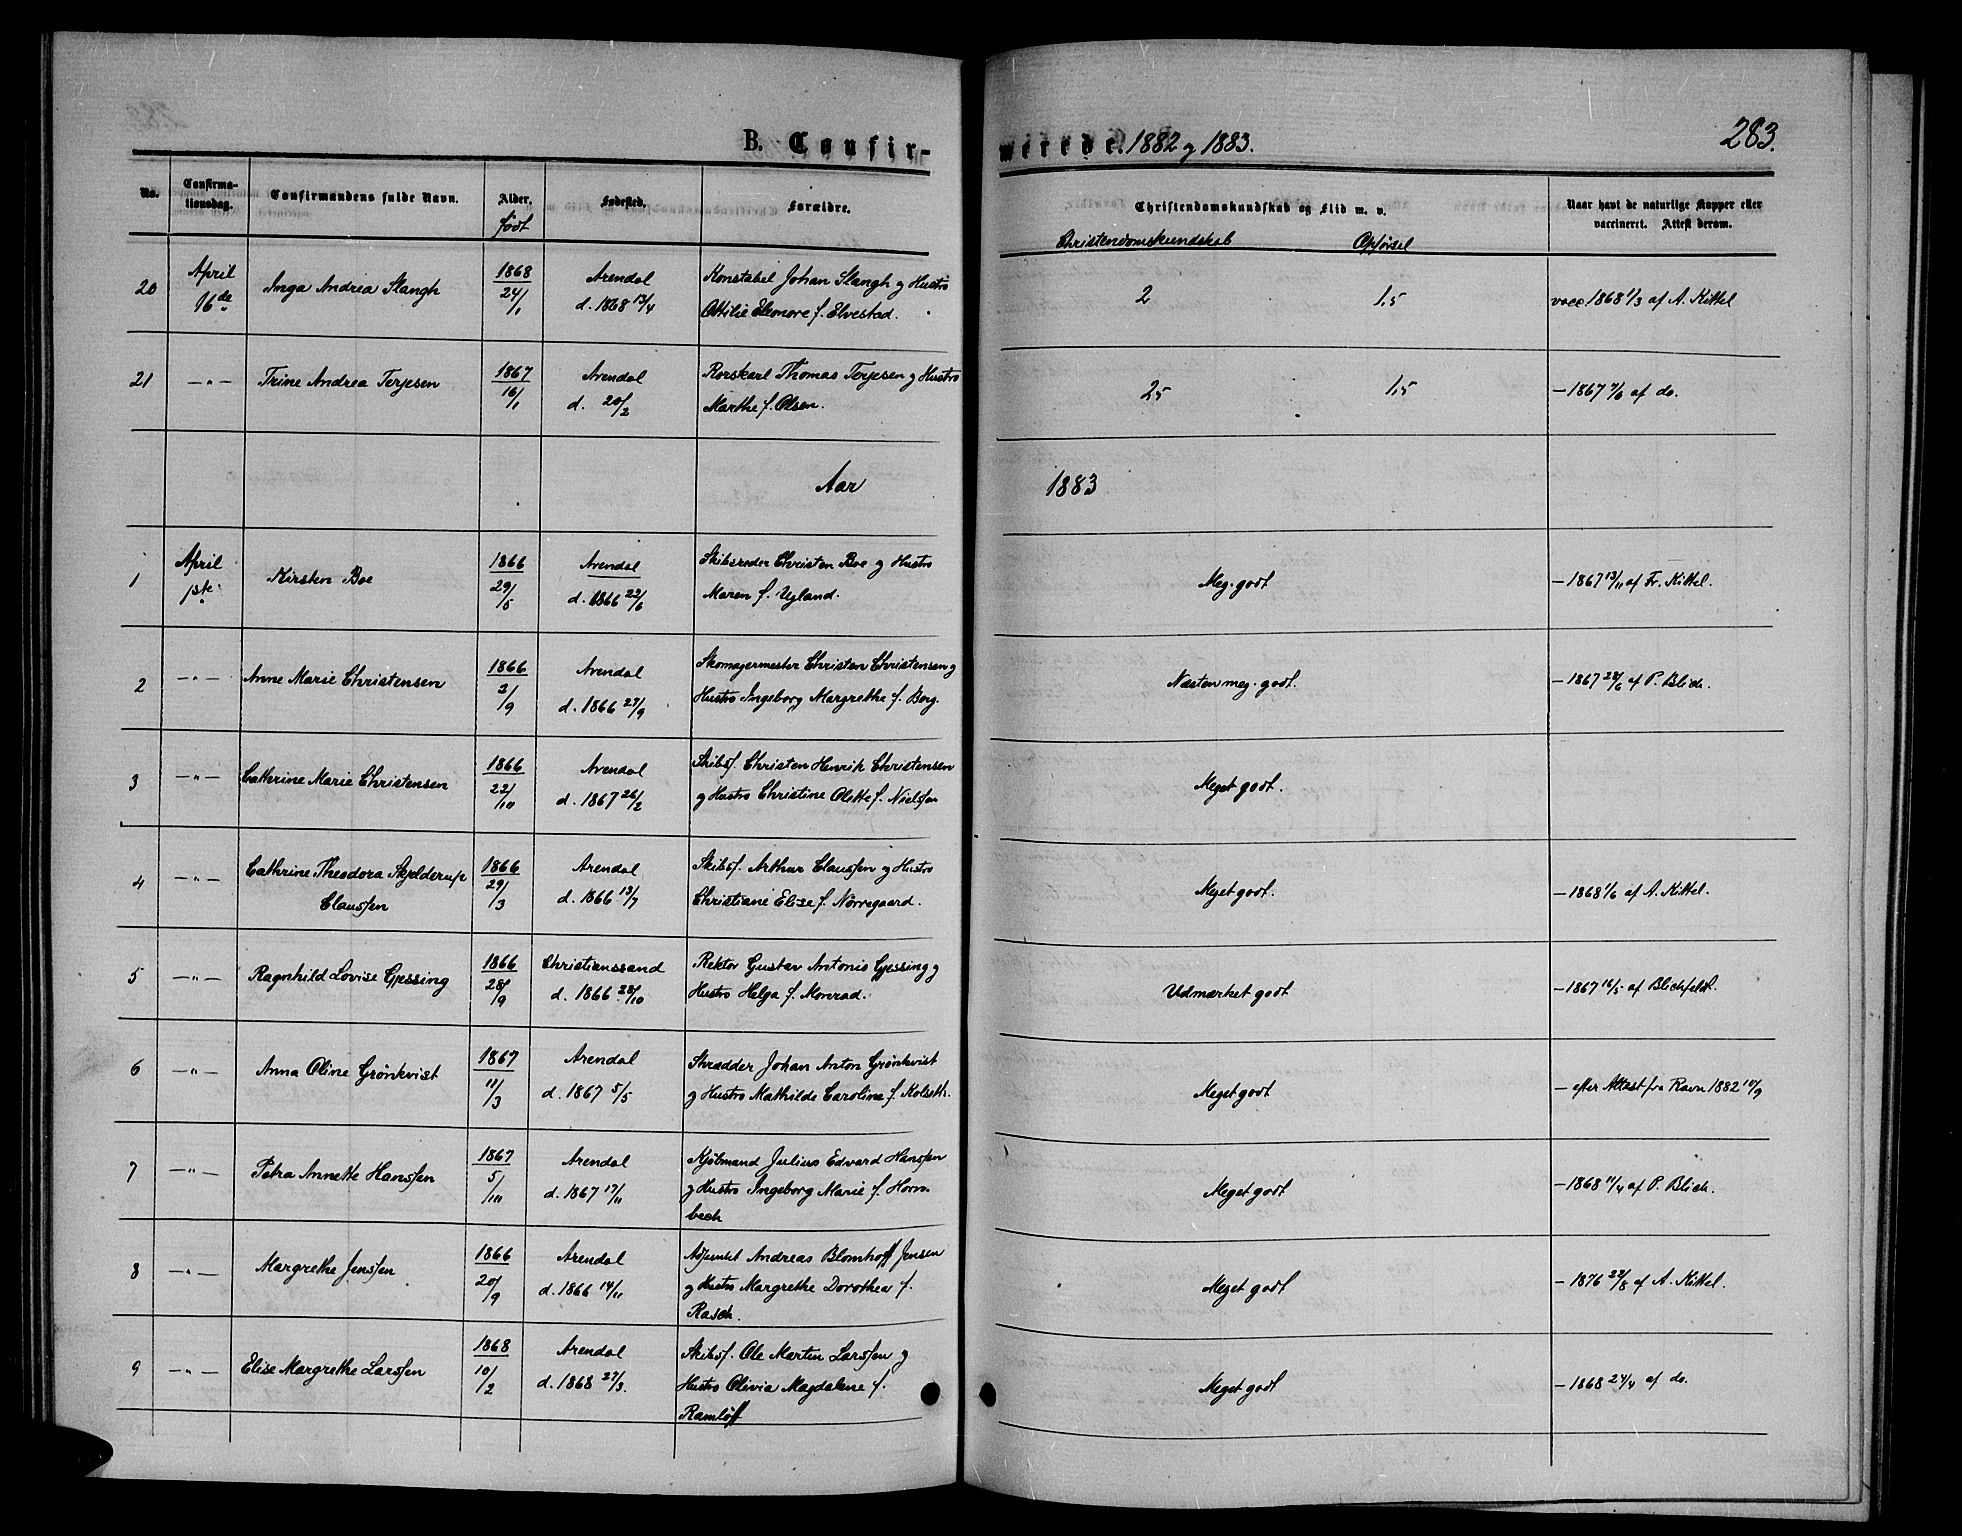 B. Confir-
merede. 1882 og 1883.
283.
No.
Confirma-
tionsdag.
Confirmandens fulde Navn.
Alder.
født
Fødested.
Forældre.
Christendomskundskab og Flid m. v.
Christendomskundskab
Opførsel
Naar havt de naturlige Kopper eller
vaccineret. Attest derom.
20
April
16de
Inga Andrea Stangh
1868
24/1
Arendal
d. 1868 13/4
Konstabel Johan Stangh og Hustro
Ottilie Eleonore f. Elvestad.
2
1,5
vacc 1868 1/3 af A. Kittel
21
—„—
Trine Andrea Terjesen
1867
16/1
Arendal
d. 20/2
Rorskarl Thomas Terjesen og Hustro
Marthe f. Olsen.
25
1,5
— 1867 7/6 af do.
Aar
1883
1
April
1ste
Kirsten Boe
1866
29/5
Arendal
d. 1866 22/6
Skibsreder Christen Boe og Hustro
Maren f. Ugland.
Meg. godt
— 1867 13/11 af Fr. Kittel.
2
—„—
Anne Marie Christensen
1866
2/9
Arendal
d. 1866 27/9
Skomagermester Christen Christensen og
Hustro Ingeborg Margrethe f. Berg.
Næsten meg. godt.
— 1867 28/6 af P. Blich.
3
—„—
Cathrine Marie Christensen
1866
22/10
Arendal
d. 1867 26/2
Skibsf. Christen Henrik Christensen
og Hustro Christine Olette f. Nielsen
Meget godt.
4
—„—
Cathrine Theodora Skjelderup
Claussen
1866
29/3
Arendal
d. 1866 13/7
Skibsf. Arthur Claussen og Hustro
Christiane Elise f. Nørregaard.
Meget godt.
— 1868 1/6 af A. Kittel.
5
—„—
Ragnhild Lovise Gjessing
1866
28/9
Christianssand
d. 1866 28/10
Rektor Gustav Antonio Gjessing og
Hustro Helga f. Monrad.
Udmærket godt
— 1867 16/5 af Blichfeldt.
6
—„—
Anna Oline Grönkvist
1867
11/3
Arendal
d. 1867 5/5
Skrædder Johan Anton Grönkvist
og Hustro Mathilde Caroline f. Kolseth.
Meget godt
— efter Attest fra Ravn 1882 10/9
7
—„—
Petra Annette Hanssen
1867
5/10
Arendal
d. 1867 17/11
Kjöbmand Julius Edvard Hanssen
og Hustro Ingeborg Marie f. Horn-
bech
Meget godt
— 1868 17/4 af P. Blich.
8
—„—
Margrethe Jenssen
1866
20/9
Arendal
d. 1866 14/11
Adjunkt Andreas Blomhoff Jensen
og Hustro Margrethe Dorothea f.
Rasch.
Meget godt
— 1876 22/8 af A. Kittel.
9
—„—
Elise Margrethe Larssen
1868
10/2
Arendal
d. 1868 27/3.
Skibsf. Ole Martin Larssen og
Hustro Olivia Magdalene f.
Ramlöff
Meget godt
— 1868 24/4 af do.